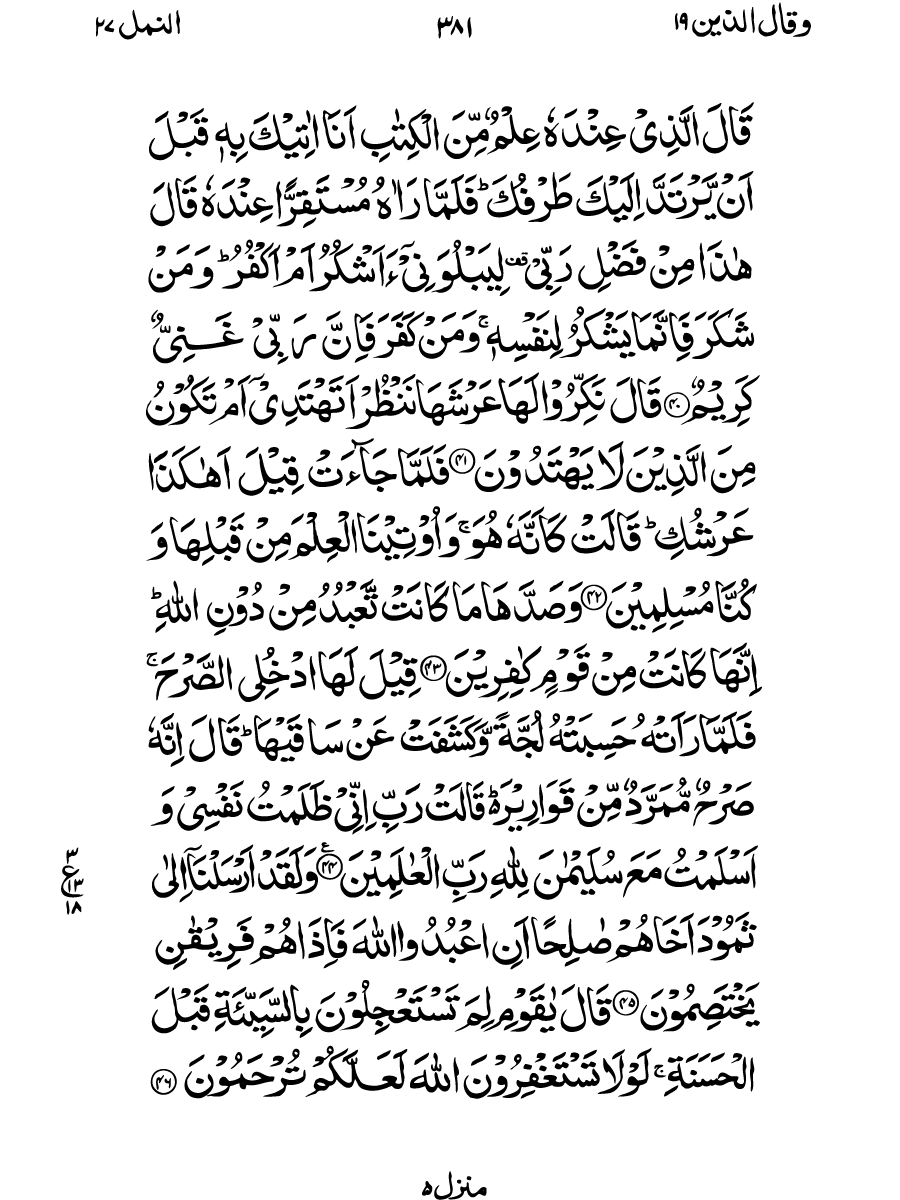 وقال الذین ۱۹
۳۸۱
النمل ۲۷
قَالَ الَّذِیْ عِنْدَهٗ عِلْمٌ مِّنَ الْكِتٰبِ اَنَا اٰتِیْكَ بِهٖ قَبْلَ
اَنْ یَّرْتَدَّ اِلَیْكَ طَرْفُكَ ؕ فَلَمَّا رَاٰهُ مُسْتَقِرًّا عِنْدَهٗ قَالَ
هٰذَا مِنْ فَضْلِ رَبِّیْ ۫ۖ لِیَبْلُوَنِیْۤ ءَاَشْكُرُ اَمْ اَكْفُرُ ؕ وَ مَنْ
شَكَرَ فَاِنَّمَا یَشْكُرُ لِنَفْسِهٖ ۚ وَ مَنْ كَفَرَ فَاِنَّ رَبِّیْ غَنِیٌّ
كَرِیْمٌ ۝۴۰ قَالَ نَكِّرُوْا لَهَا عَرْشَهَا نَنْظُرْ اَتَهْتَدِیْۤ اَمْ تَكُوْنُ
مِنَ الَّذِیْنَ لَا یَهْتَدُوْنَ ۝۴۱ فَلَمَّا جَآءَتْ قِیْلَ اَهٰكَذَا
عَرْشُكِ ؕ قَالَتْ كَاَنَّهٗ هُوَ ۚ وَ اُوْتِیْنَا الْعِلْمَ مِنْ قَبْلِهَا وَ
كُنَّا مُسْلِمِیْنَ ۝۴۲ وَ صَدَّهَا مَا كَانَتْ تَّعْبُدُ مِنْ دُوْنِ اللّٰهِ ؕ
اِنَّهَا كَانَتْ مِنْ قَوْمٍ كٰفِرِیْنَ ۝۴۳ قِیْلَ لَهَا ادْخُلِی الصَّرْحَ ۚ
فَلَمَّا رَاَتْهُ حَسِبَتْهُ لُجَّةً وَّ كَشَفَتْ عَنْ سَاقَیْهَا ؕ قَالَ اِنَّهٗ
صَرْحٌ مُّمَرَّدٌ مِّنْ قَوَارِیْرَ ؕ۬ قَالَتْ رَبِّ اِنِّیْ ظَلَمْتُ نَفْسِیْ وَ
اَسْلَمْتُ مَعَ سُلَیْمٰنَ لِلّٰهِ رَبِّ الْعٰلَمِیْنَ ۝۴۴ وَ لَقَدْ اَرْسَلْنَاۤ اِلٰی
۳
ع
۱۳
۱۸
ثَمُوْدَ اَخَاهُمْ صٰلِحًا اَنِ اعْبُدُوا اللّٰهَ فَاِذَا هُمْ فَرِیْقٰنِ
یَخْتَصِمُوْنَ ۝۴۵ قَالَ یٰقَوْمِ لِمَ تَسْتَعْجِلُوْنَ بِالسَّیِّئَةِ قَبْلَ
الْحَسَنَةِ ۚ لَوْ لَا تَسْتَغْفِرُوْنَ اللّٰهَ لَعَلَّكُمْ تُرْحَمُوْنَ ۝۴۶
منزل ۵